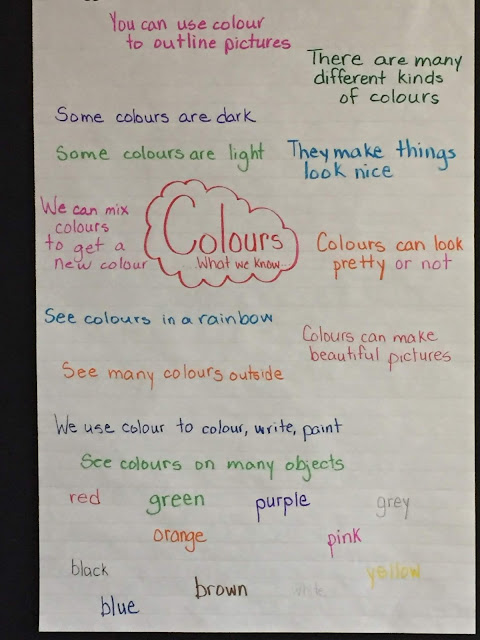 You can use colour
to outline pictures
There are many
different kinds
of colours
Some colours are dark
Some colours are light
They make things
look nice
We can mix
colours
to get a
new colour
Colours
What we know...
Colours can look
pretty or not
See colours in a rainbow
Colours can make
beautiful pictures
See many colours outside
We use colour to colour, write, paint
See colours on many objects
red green purple grey
orange pink
black yellow
brown white
blue